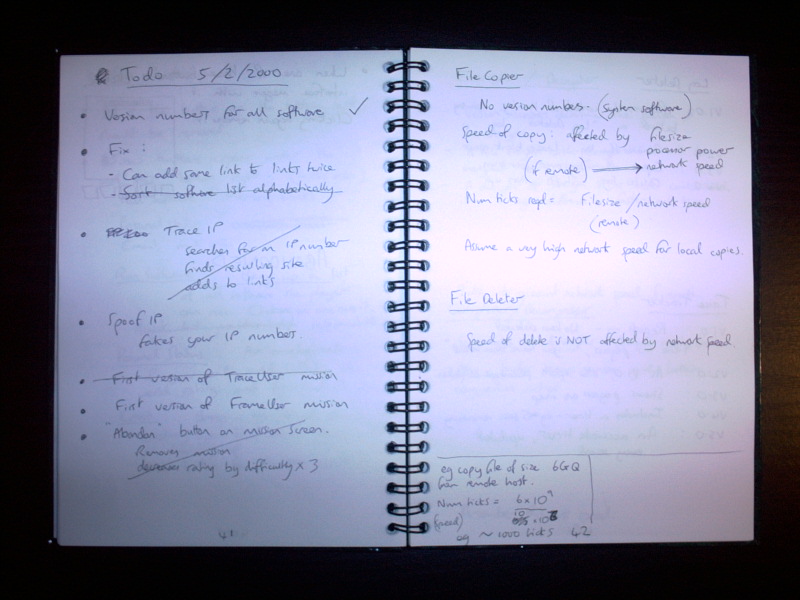 Todo 5/2/2000
• Version numbers for all software ✓
• Fix :
- Can add same link to links twice
- Sort software list alphabetically
• Trace IP
searches for an IP number
finds resulting site
adds to links
• Spoof IP
fakes your IP numbers.
• First version of TraceUser mission
• First version of FrameUser mission
• "Abandon" button on mission screen.
Removes mission
decreases rating by difficulty x 3
41
File Copier
No version numbers - (system software)
Speed of copy : affected by filesize
processor power
(if remote) → network speed
Num ticks reqd = Filesize / network speed
(remote)
Assume a very high network speed for local copies.
File Deleter
Speed of delete is NOT affected by network speed.
eg copy file of size 6GQ
from remote host.
Num ticks = 6 x 10⁹
(need) 10 x 10⁶
eg ~ 1000 ticks 42